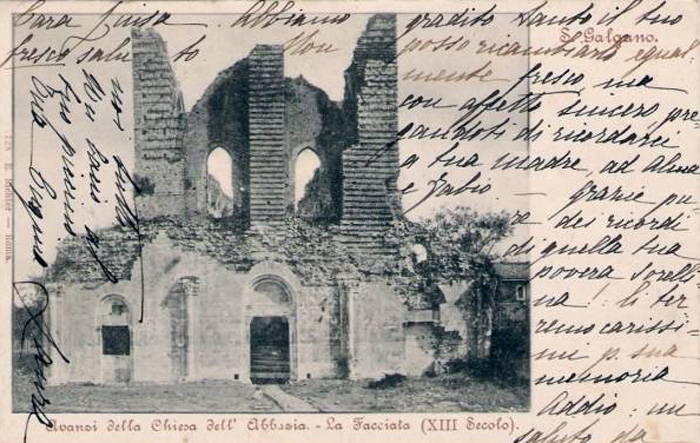 Cara Luisa. Abbiamo gradito tanto il tuo
fresco saluto Non posso ricambiarlo egual=
mente fresco, ma
con affetto sincero, pre
gandoti di ricordarci
a tua madre, ad Alma
e Fabio — grazie pu
re dei ricordi
di quella tua
povera Sorelli
na! li ter
remo carissi=
mi p. sua
memoria
Addio: un
saluto da
noi tutti
Un bacio dal
tuo
S. Galgano.
728 E. — Roma.
Avanzi della Chiesa dell' Abbazia. - La Facciata (XIII Secolo).